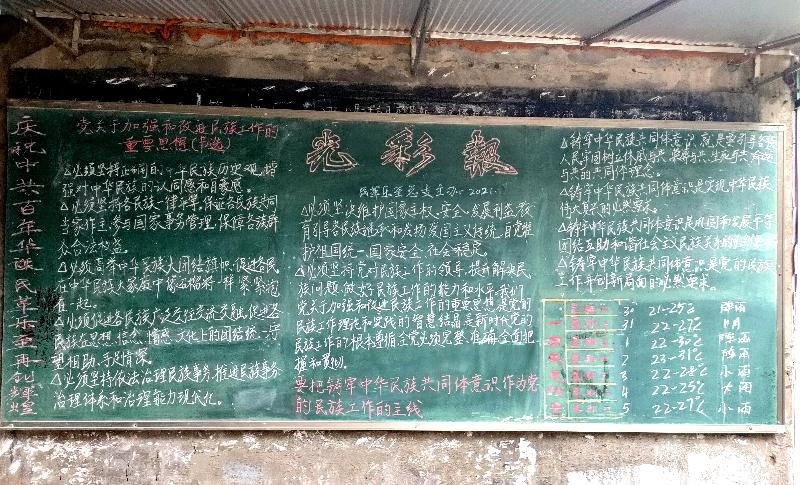 庆祝中共百年华诞民革乐至再创辉煌
党关于加强和改进民族工作的
重要思想(节选)
△必须坚持正确的中华民族历史观,增
强对中华民族的认同感和自豪感。
△必须坚持各民族一律平等,保证各民族共同
当家作主、参与国家事务管理,保障各族群
众合法权益。
△必须高举中华民族大团结旗帜,促进各民
族在中华民族大家庭中像石榴籽一样紧紧抱
在一起。
△必须促进各民族广泛交往交流交融,促进各
民族在思想、信念、情感、文化上的团结统一,守
望相助、手足情深。
△必须坚持依法治理民族事务,推进民族事务
治理体系和治理能力现代化。
光彩报
民革乐至总支主办 2021.
△必须坚决维护国家主权、安全、发展利益,教
育引导各民族继承和发扬爱国主义传统,自觉维
护祖国统一、国家安全、社会稳定。
△必须坚持党对民族工作的领导,提升解决民
族问题、做好民族工作的能力和水平。我们
党关于加强和改进民族工作的重要思想,是党的
民族工作理论和实践的智慧结晶,是新时代党的
民族工作的根本遵循,全党必须完整、准确、全面把
握和贯彻。
要把铸牢中华民族共同体意识作为党
的民族工作的主线
△铸牢中华民族共同体意识,就是要引导各族
人民牢固树立休戚与共、荣辱与共、生死与共、命运
与共的共同体理念。
△铸牢中华民族共同体意识是实现中华民族
伟大复兴的必然要求。
△铸牢中华民族共同体意识是巩固和发展平等
团结互助和谐社会主义民族关系的必然要求
△铸牢中华民族共同体意识是党的民族
工作开创新局面的必然要求。
30 21-25℃ 阵雨
31 22-27℃ 阴
1 22-30℃ 阵雨
2 23-31℃ 阵雨
3 22-28℃ 小雨
4 22-25℃ 大雨
5 22-27℃ 小雨